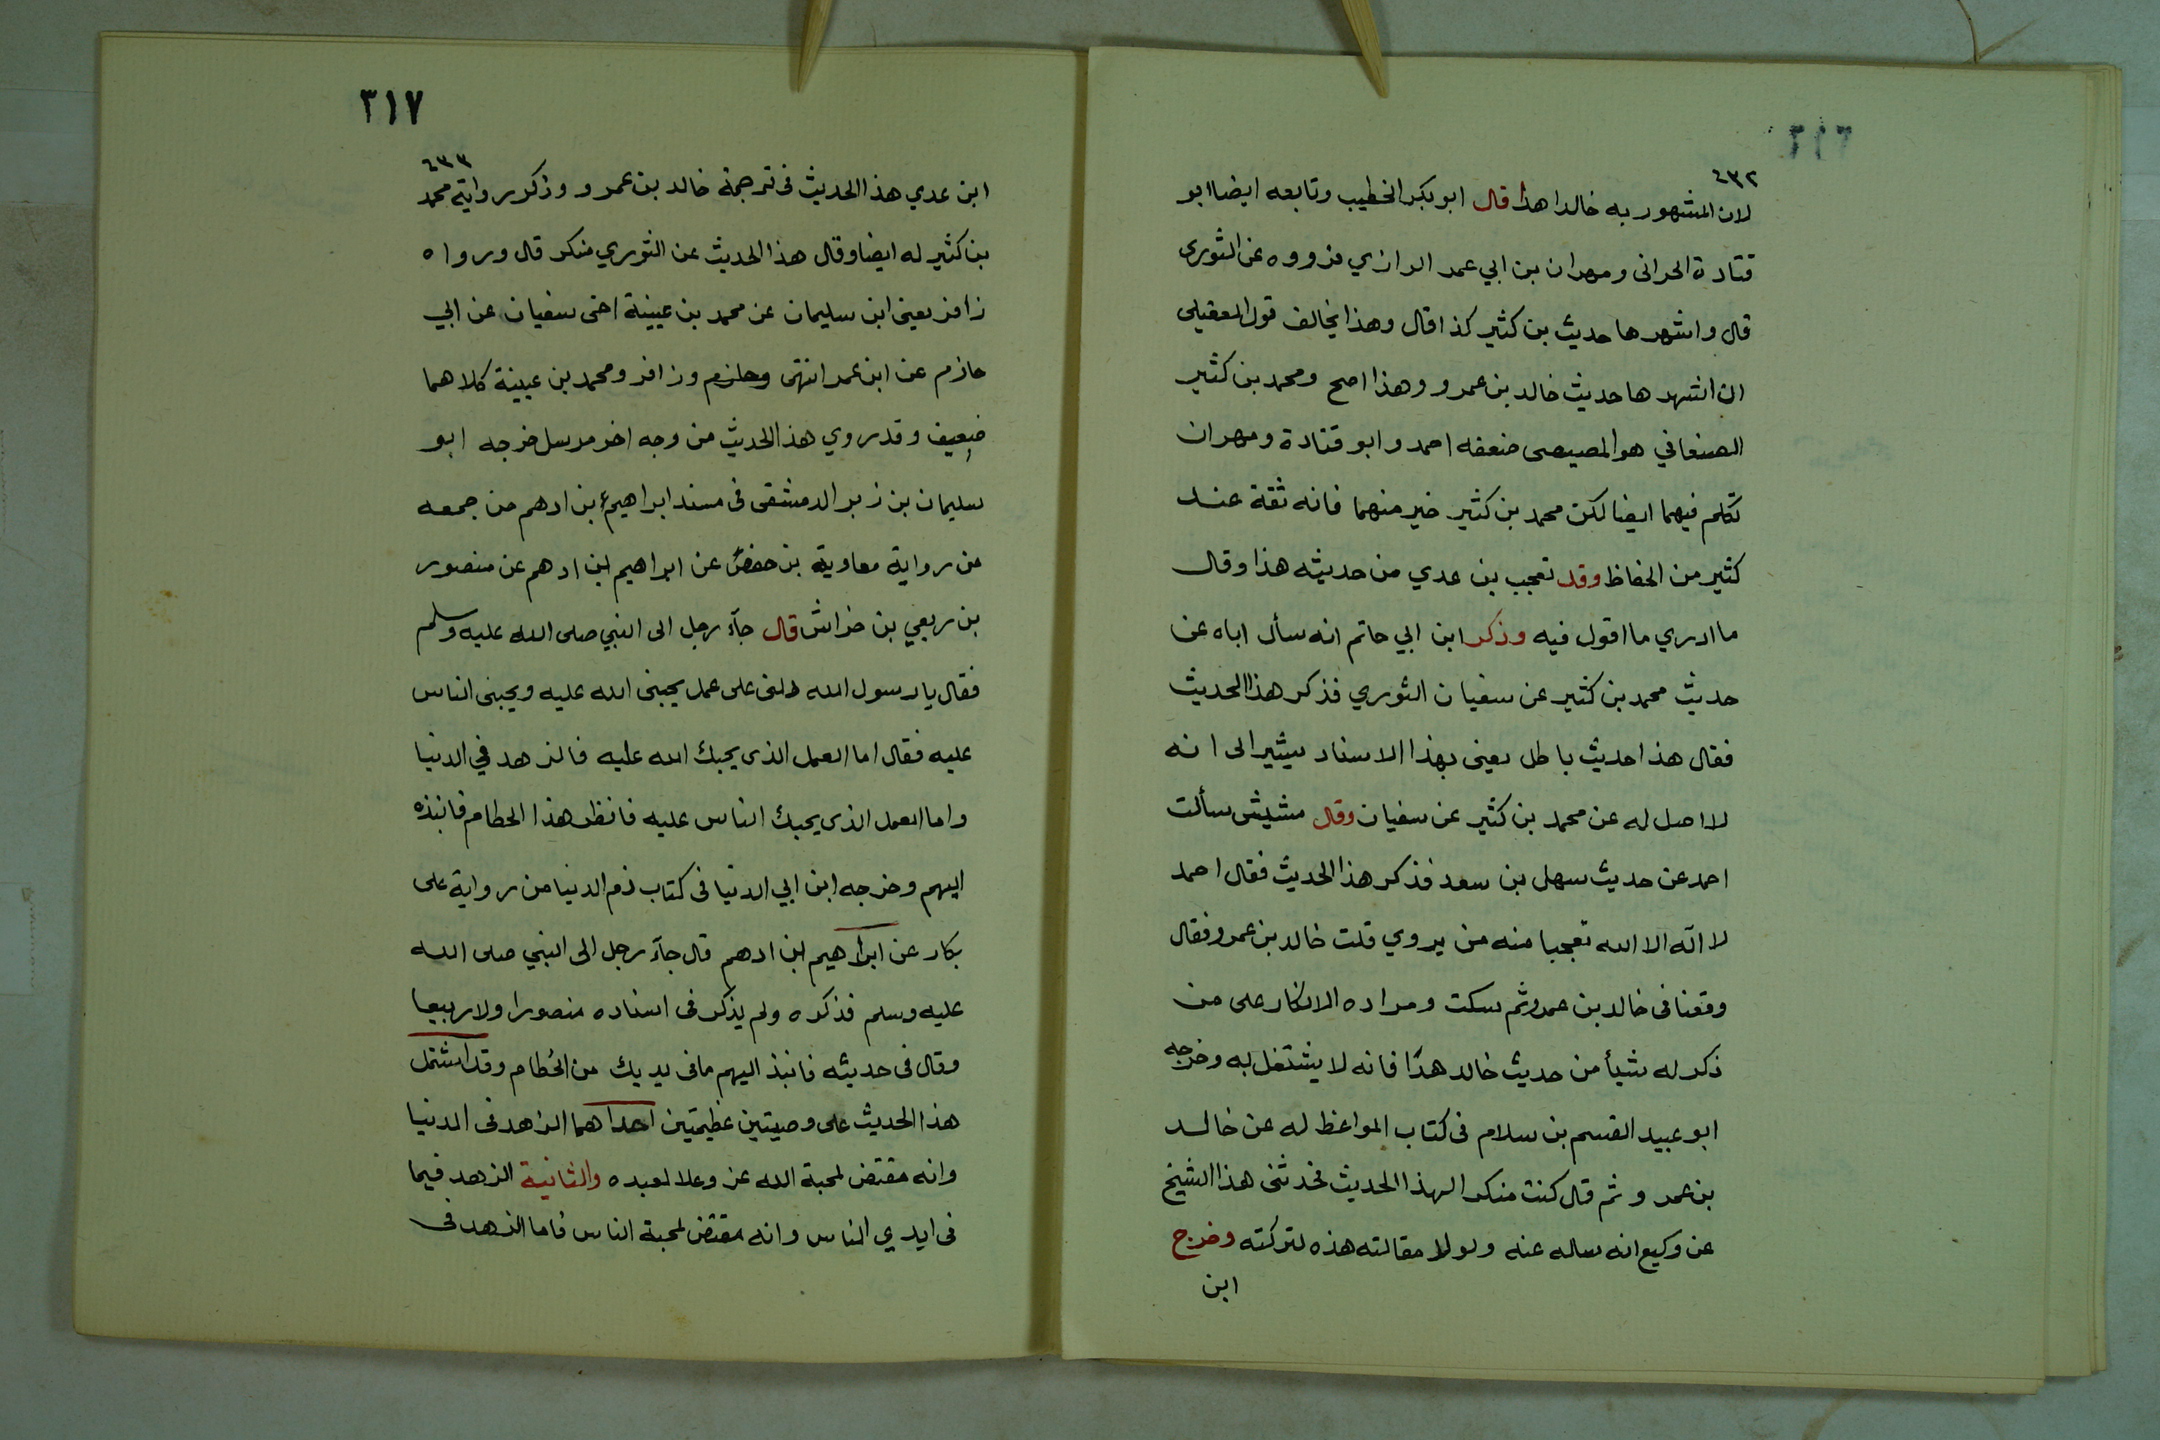 ٤٣٢
لان المشهور به خالدا هذا قال ابو بكر الخطيب وتابعه ايضا ابو
قتادة الحرانى ومهران بن ابي عمر الرازي فرووه عن الثورى
قال واشهرها حديث بن كثير كذا قال وهذا يخالف قول العقيلى
ان اشهرها حديث خالد بن عمرو وهذا اصح ومحمد بن كثير
الصنعاني هو المصيصى ضعفه احمد وابو قتادة ومهران
تكلم فيهما ايضا لكن محمد بن كثير خير منهما فانه ثقة عند
كثير من الحفاظ وقد تعجب بن عدي من حديثه هذا وقال
ما ادري ما اقول فيه وذكر ابن ابي حاتم انه سأل اباه عن
حديث محمد بن كثير عن سفيان الثوري فذكر هذا الحديث
فقال هذا حديث باطل يعنى بهذا الاسناد يشير الى انه
لا اصل له عن محمد بن كثير عن سفيان وقال مشيشى سألت
احمد عن حديث سهل بن سعد فذكر هذا الحديث فقال احمد
لا اله الا الله تعجبا منه من يروي قلت خالد بن عمرو فقال
وقعنا فى خالد بن عمرو ثم سكت ومراده الانكار على من
ذكر له شيأ من حديث خالد هذا فانه لا يشتغل به وخرجه
ابو عبيد القسم بن سلام فى كتاب المواعظ له عن خالد
بن عمرو ثم قال كنت منكرا لهذا الحديث فحدثنى هذا الشيخ
عن وكيع انه ساله عنه ولولا مقالته هذه لتركته وخرج
ابن
٣١٧
٤٣٣
ابن عدي هذا الحديث فى ترجمة خالد بن عمرو وذكر رواية محمد
بن كثير له ايضا وقال هذا الحديث عن الثوري منكر قال ورواه
زافر يعنى ابن سليمان عن محمد بن عيينة اخى سفيان عن ابي
حازم عن ابن عمر انتهى وحازم وزافر ومحمد بن عيينة كلاهما
ضعيف وقد روي هذا الحديث من وجه اخر مرسل خرجه ابو
سليمان بن زبر الدمشقى فى مسند ابراهيم بن ادهم من جمعه
من رواية معاوية بن حفص عن ابراهيم ابن ادهم عن منصور
بن ربعي بن خراش قال جآء رجل الى النبي صلى الله عليه وسلم
فقال يا رسول الله دلنى على عمل يحبنى الله عليه ويحبنى الناس
عليه فقال اما العمل الذى يحبك الله عليه فالزهد في الدنيا
واما العمل الذى يحبك الناس عليه فانظر هذا الحطام فانبذه
اليهم وخرجه ابن ابي الدنيا فى كتاب ذم الدنيا من رواية على
بكار عن ابراهيم ابن ادهم قال جآء رجل الى النبي صلى الله
عليه وسلم فذكره ولم يذكر فى اسناده منصورا ولا ربيعا
وقال فى حديثه فانبذ اليهم مافى يديك من الحُطام وقد اشتمل
هذا الحديث على وصيتين عظيمتين احداهما الزهد فى الدنيا
وانه مقتض لمحبة الله عز وعلا لعبده والثانية الزهد فيما
فى ايدي الناس وانه مقتض لمحبة الناس فاما الزهد فى